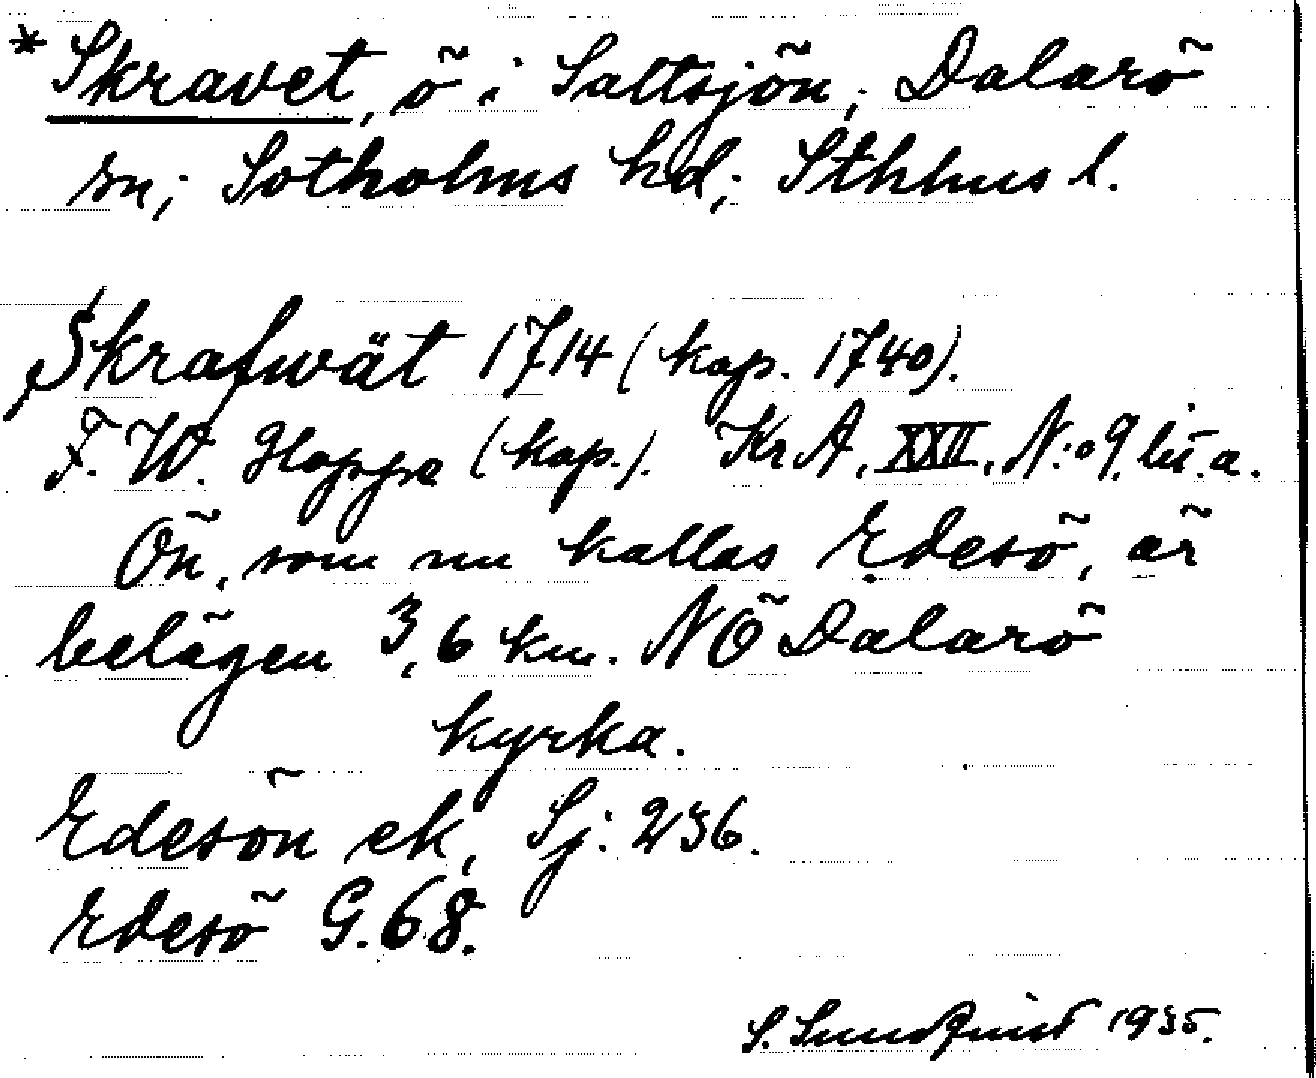 *Skravet, ö i Saltsjön, Dalarö
sn; Sotholms hd; Sthlms l.
Skrafwät 1714 (kop. 1740).
F. W. Hoppe (kop.). KrA, XXII, N:o 9. lit. a.
Ön, som nu kallas Edesö, är
belägen 3,6 km. NÖ Dalarö
kyrka.
Edesön ek, Sj: 236.
Edesö G. 68.
S. Sundquist 1935.